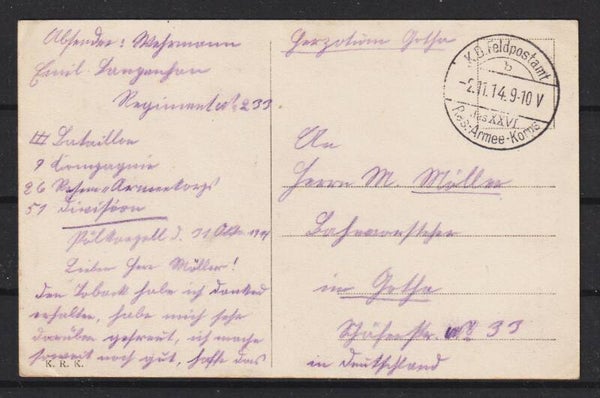 Absender: Wehrmann
Emil Langenhan
Regiment No 233
III Bataillon
9 Compagnie
26 Reserve Armeekorps
51 Division
d. 31 Okt. 1914
Lieber Herr Möller!
Den Taback habe ich dankend
erhalten, habe mich sehr
darüber gefreut, ich mache
soweit noch gut, hoffe das
K. R. K.
Herzotum Gotha
K.D. Feldpostamt
b
-2.11.14.9-10 V
des XXVI.
Res.-Armee-Korps
An
Herrn M. Möller
in Gotha
No 33
in Deutschland